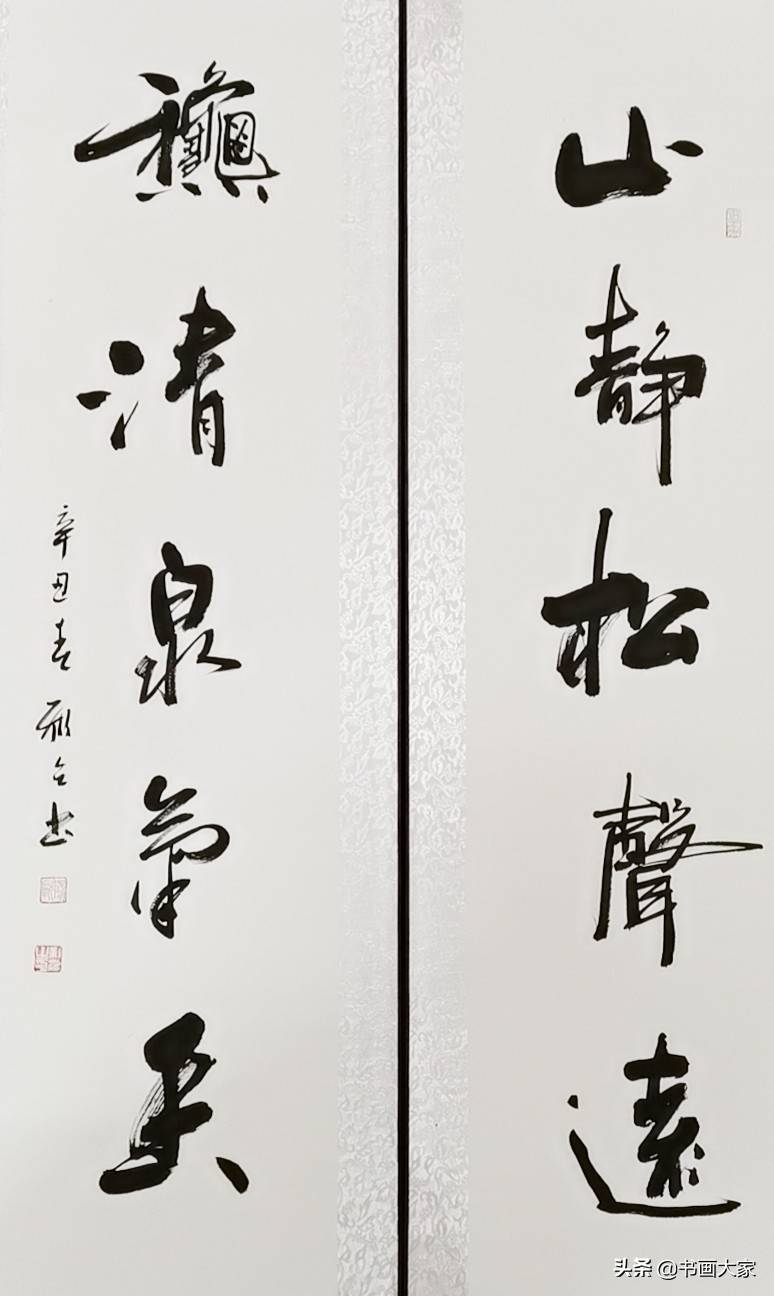 山靜松聲遠
龝清泉氣香
辛丑春 書
头条 @书画大家